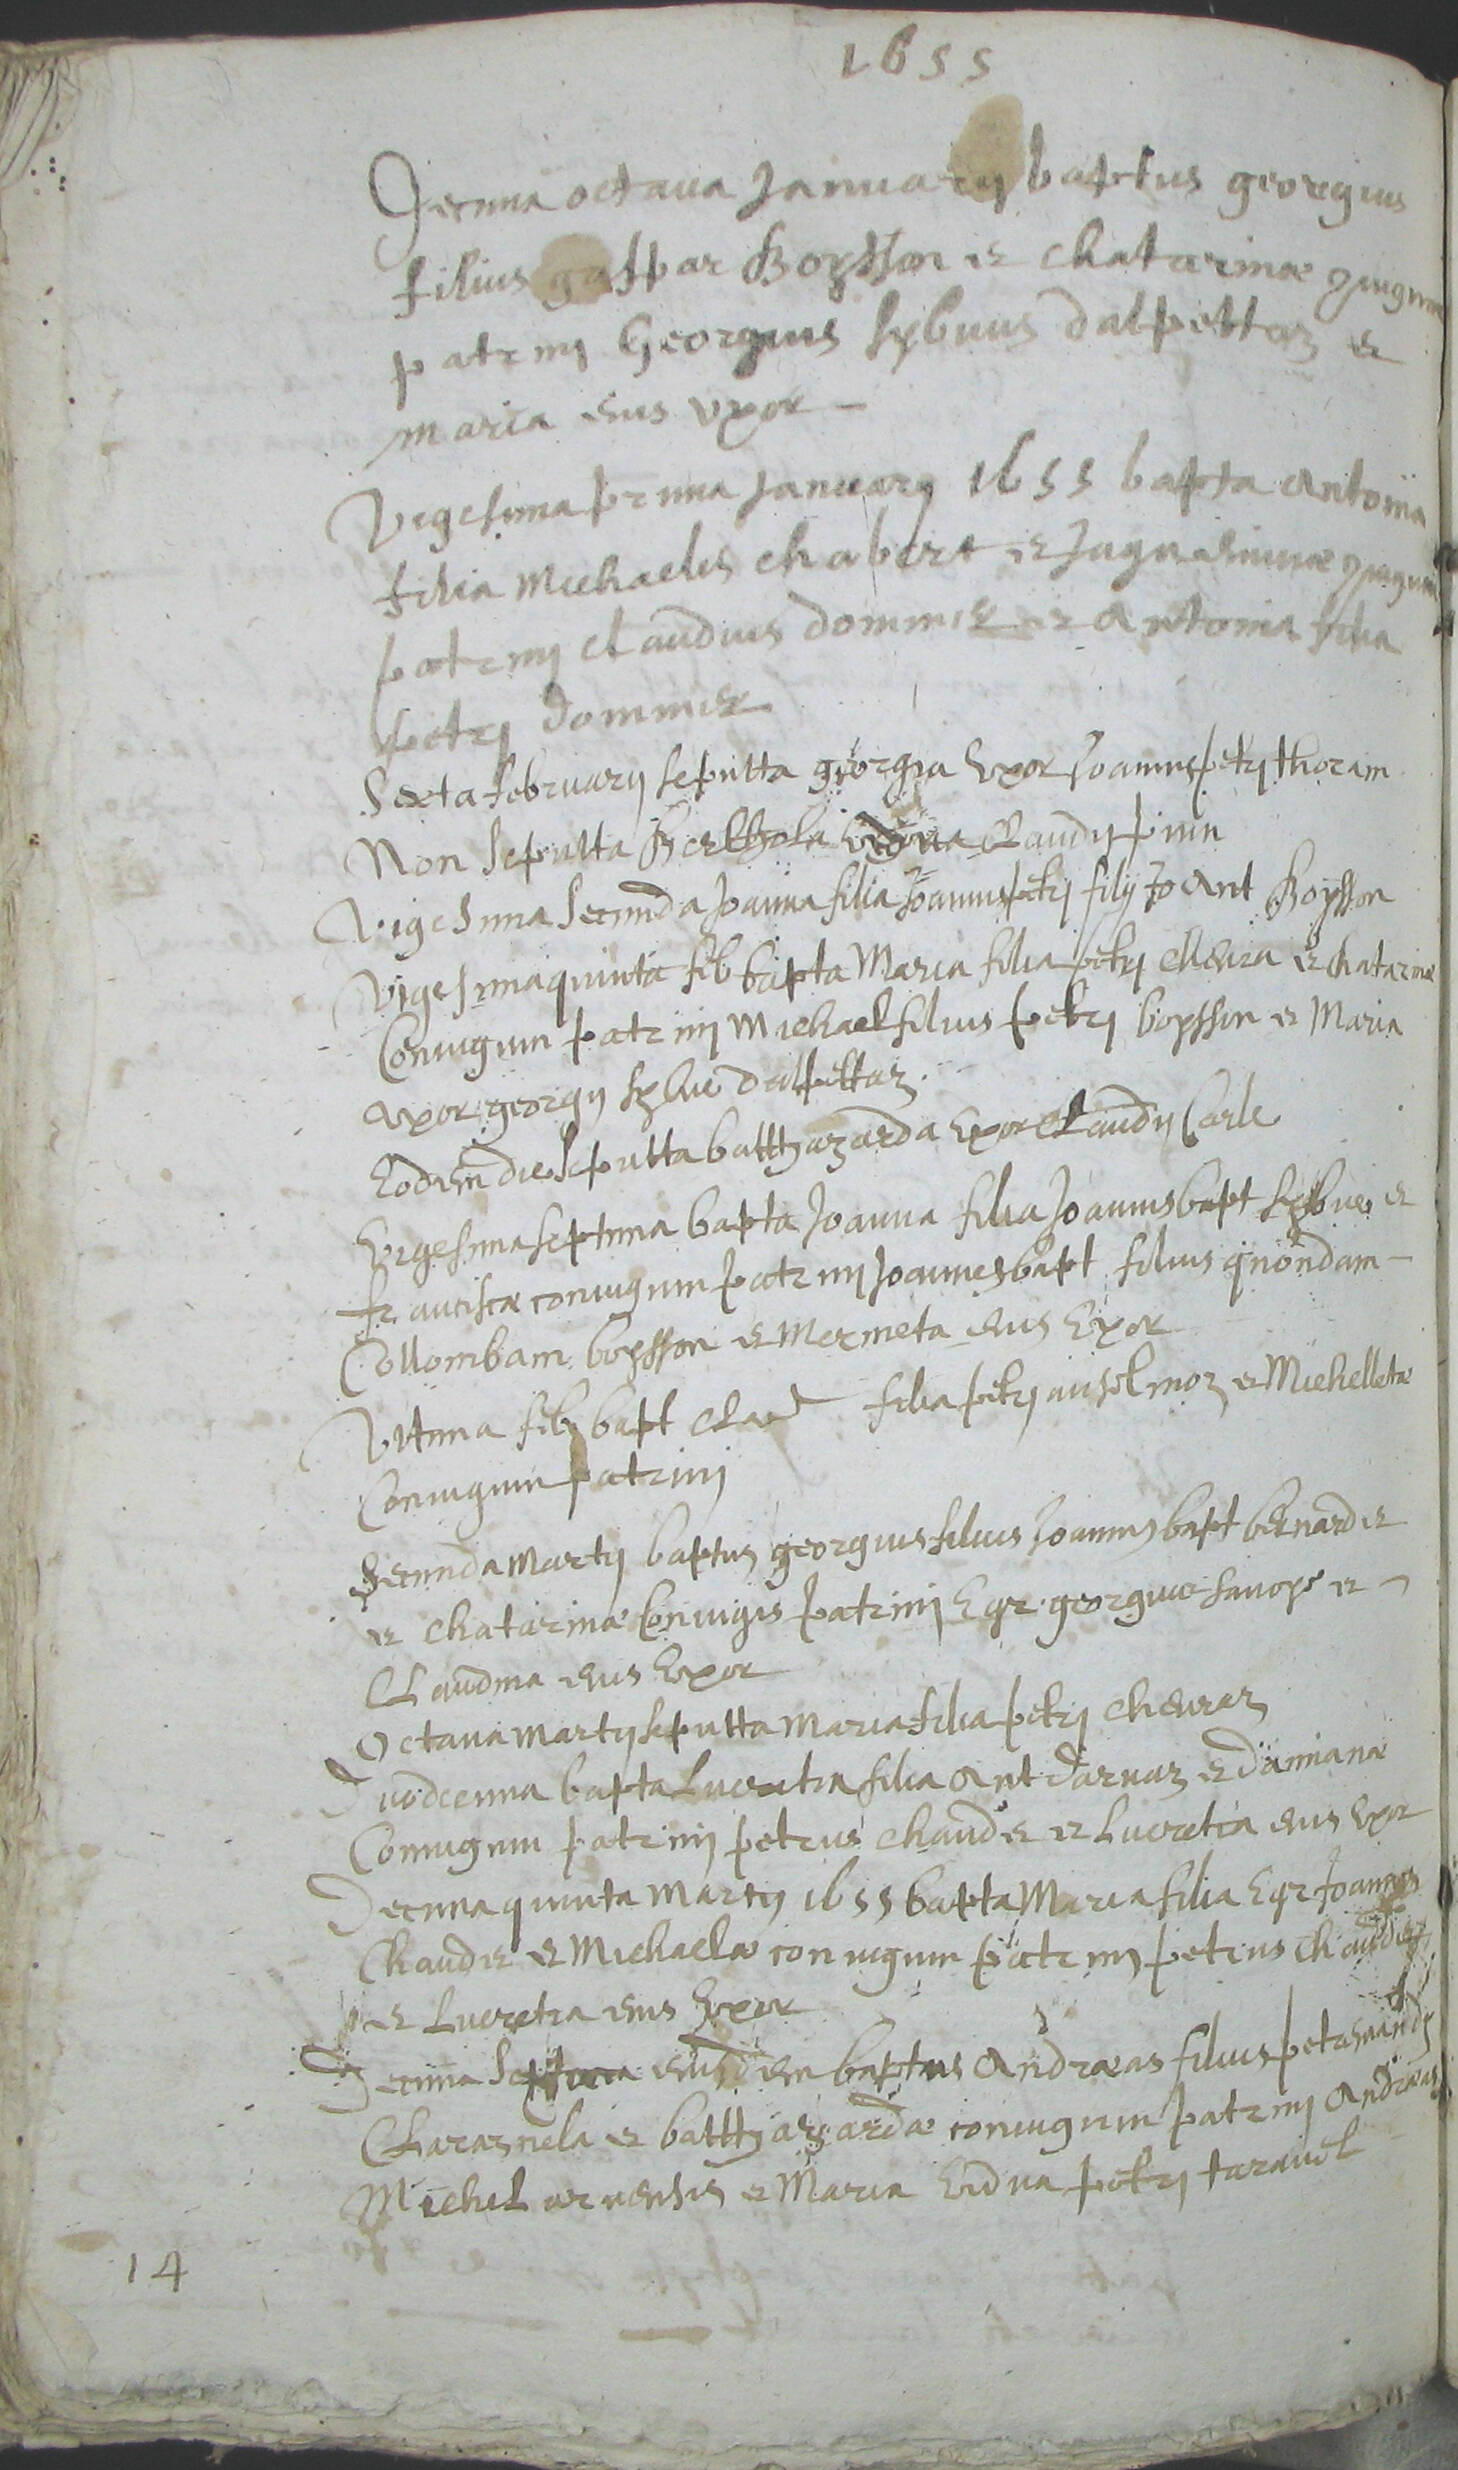 1655
Decima octava Januarij baptus georgius
filius gaspar Boysson et Chatarinæ
patrinj Georgius sylvius dalpettaz et
maria eius vxor
Vigesima prima Januarij 1655 bapta Antonia
filia Michaelis chabert et Jaquæminæ
patrinj Claudius dominiet et Antonia filia
petrj dominiet
Sexta februarij sepulta georgia vxor Joannispetrj thoram
Non sepulta Berthola vidua Claudij pinn
Vigesima secunda Joanna filia Joannispetrj filij Jo Ant Boysson
Vigesimaquinta feb bapta Maria filia petrj Chevra et Chatarinæ
Coniugum patrinj Michael filius petrj boysson et Maria
vxor georgij sylve dalpettaz
Eodem die sepulta balthazarda vxor Claudij Carle
Vigesimaseptima bapta Joanna filia Joannisbapt sylvue et
franciscæ coniugum patrinj Joannesbapt filius quondam
Collombam boysson et Mermeta eius vxor
Vltima feb bapt Claud filia petrj anselmoz et Michelletæ
Coniugum patrinj
Secunda Martij baptus georgius filius Joannisbapt bernard et
et Chatarinæ Coniugis patrinj Egr georgius savoye et
Claudina eius vxor
Octava Martij sepulta Maria filia petrj Chevraz
Duodecima bapta Lucretia filia Ant darvaz et damianæ
Coniugum patrinj petrus Chaudet et Lucretia eius vxor
Decimaquinta Martij 1655 bapta Maria filia Egr Joannis
Chaudet et Michaelæ coniugum patrinj petrus Chaudet
et Lucretia eius vxor
Decima septima eiusdem baptus Andræas filius petremandj
Charasnela et balthazardæ coniugum patrinj Andræas
Michel arvensis et Maria vidua petrj taravel
14